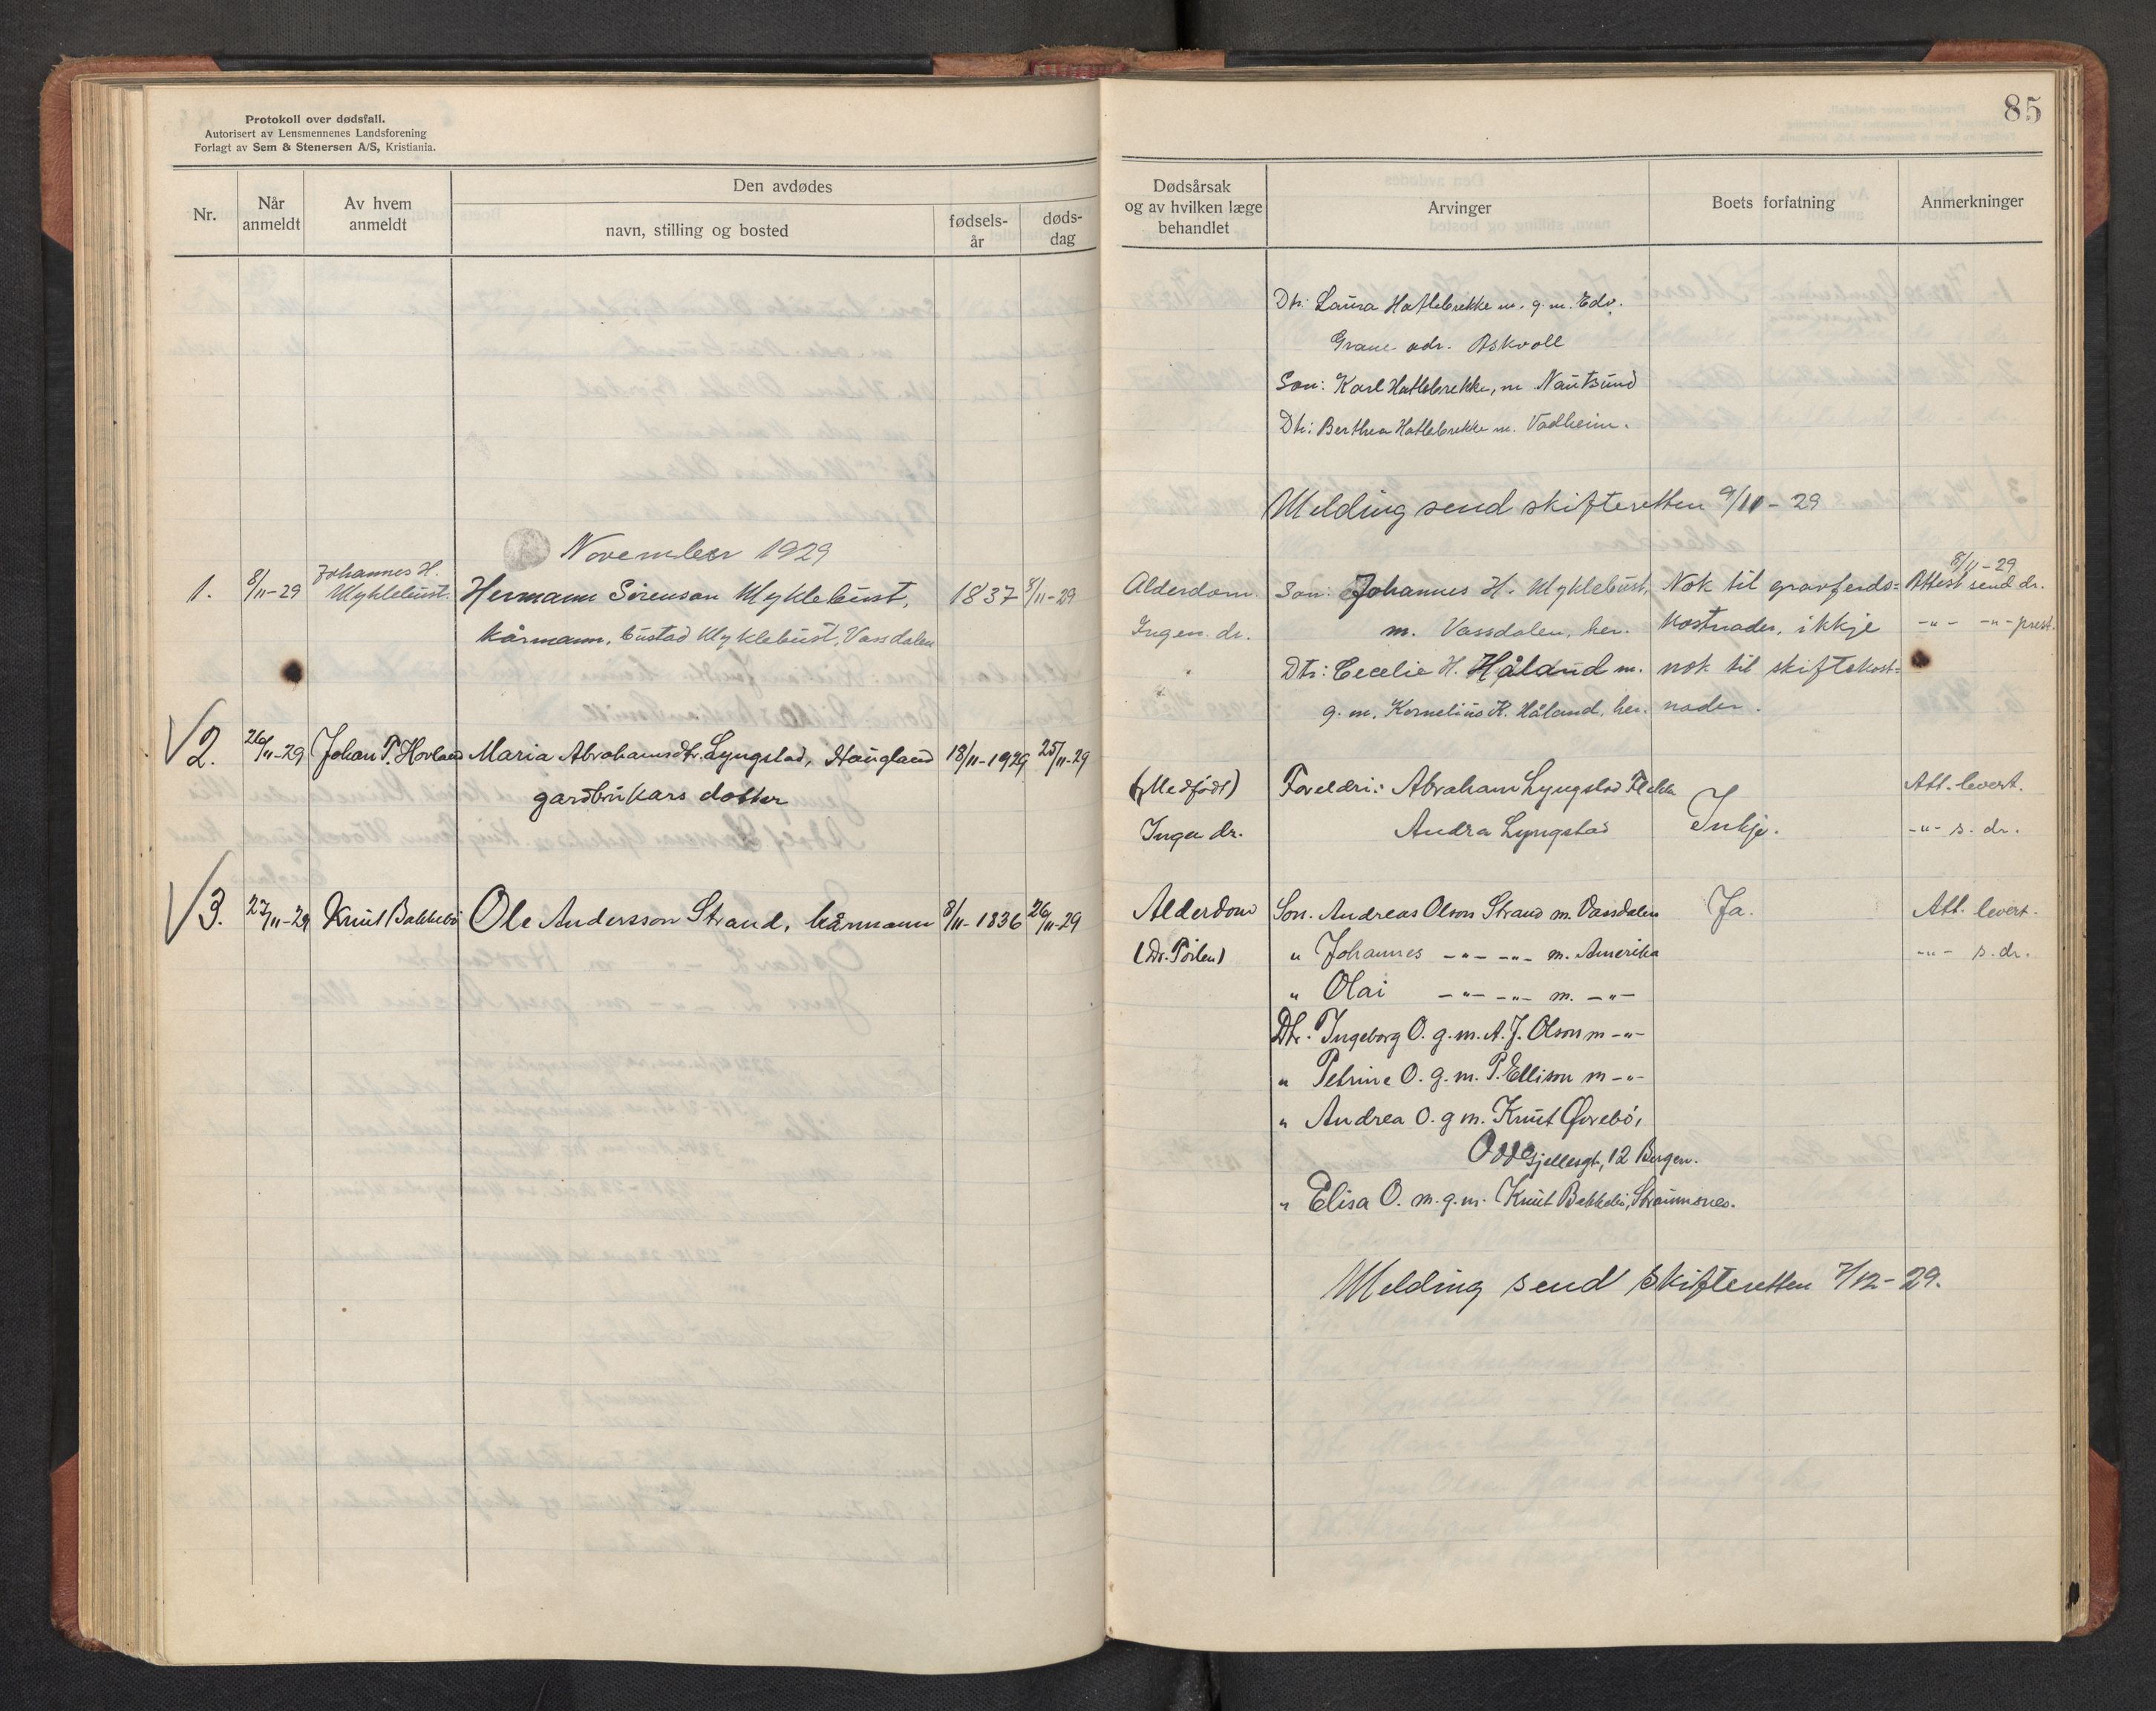 Protokoll over dødsfall.
Autorisert av Lensmennenes Landsforening
Forlagt av Sem & Stenersen A/S, Kristiania.
Nr.
Når anmeldt
Av hvem anmeldt
Den avdødes
navn, stilling og bosted
fødsels-år
døds-dag
November 1929
1. 8/11-29 Johannes H. Myklebust. Hermann Sørenson Myklebust, 1837 8/11-29
kårmann, bustad Myklebust, Vassdalen
2. 26/11-29 Johan P. Hovland Maria Abrahamsdtr. Lyngstad, Haugland 18/11-1929 25/11-29
gardbrukars dotter
3. 27/11-29 Knut Bakkebø Ole Andersson Strand, kårmann 8/11-1836 26/11-29
85
Dødsårsak
og av hvilken læge
behandlet
Arvinger
Boets forfatning
Anmerkninger
Dtr: Laura Hatlebrekke m. g. m. Edv.
Grane adr. Askvoll
Son: Karl Hatlebrekke, m Nautsund
Dtr: Berthea Hatlebrekke m. Vadheim.
Melding send skifteretten 9/11-29
8/11-29
Alderdom Son: Johannes H. Myklebust, Nok til gravferds= Attest send dr.
Ingen dr. m. Vassdalen, her. kostnader, ikkje -"- -"- prest.
Dtr: Cecelie H. Håland m. nok til skiftekost=
g. m. Kornelius K. Håland, her. nader.
(Medfødt) Foreldri: Abraham Lyngstad Flekke Att. levert.
Ingen dr. Andra Lyngstad Inkje. -"- s. dr.
Alderdom Son. Andreas Olson Strand m. Vassdalen Ja. Att. levert.
(Dr. Poilen) " Johannes -"- -"- m. Amerika -"- s. dr.
" Olai -"- -"- m. -"-
Dtr. Ingeborg O. g. m. A. J. Olson m -"-
" Petrine O. g. m. P. Ellison m -"-
" Andrea O. g m. Knut Øvrebø,
Odde gjellesgt, 12 Bergen.
" Elisa O. m. g. m. Knut Bakkebø, Straumsnes.
Melding send skifteretten 7/12-29.